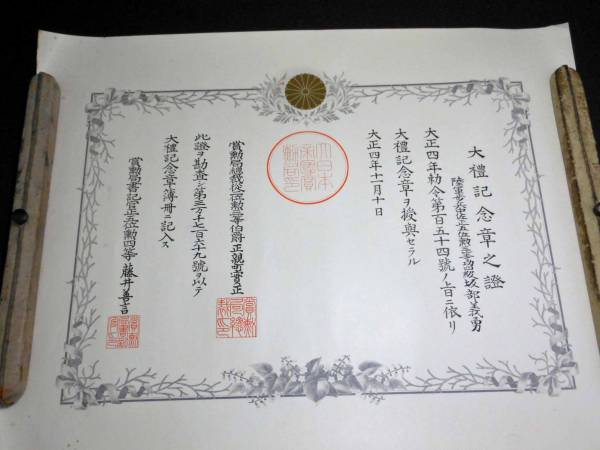 大禮記念章之證
陸軍歩兵大佐正五位勲三等功四級坂部義勇
大正四年勅令第百五十四號ノ旨ニ依リ
大禮記念章ヲ授與セラル
大正四年十一月十日
大日本帝國璽
賞勲局總裁從二位勲二等伯爵正親町實正
此證ヲ勘査シ第三万千七百六十九號ヲ以テ
大禮記念章簿冊ニ記入ス
賞勲局書記官正五位勲四等藤井善言